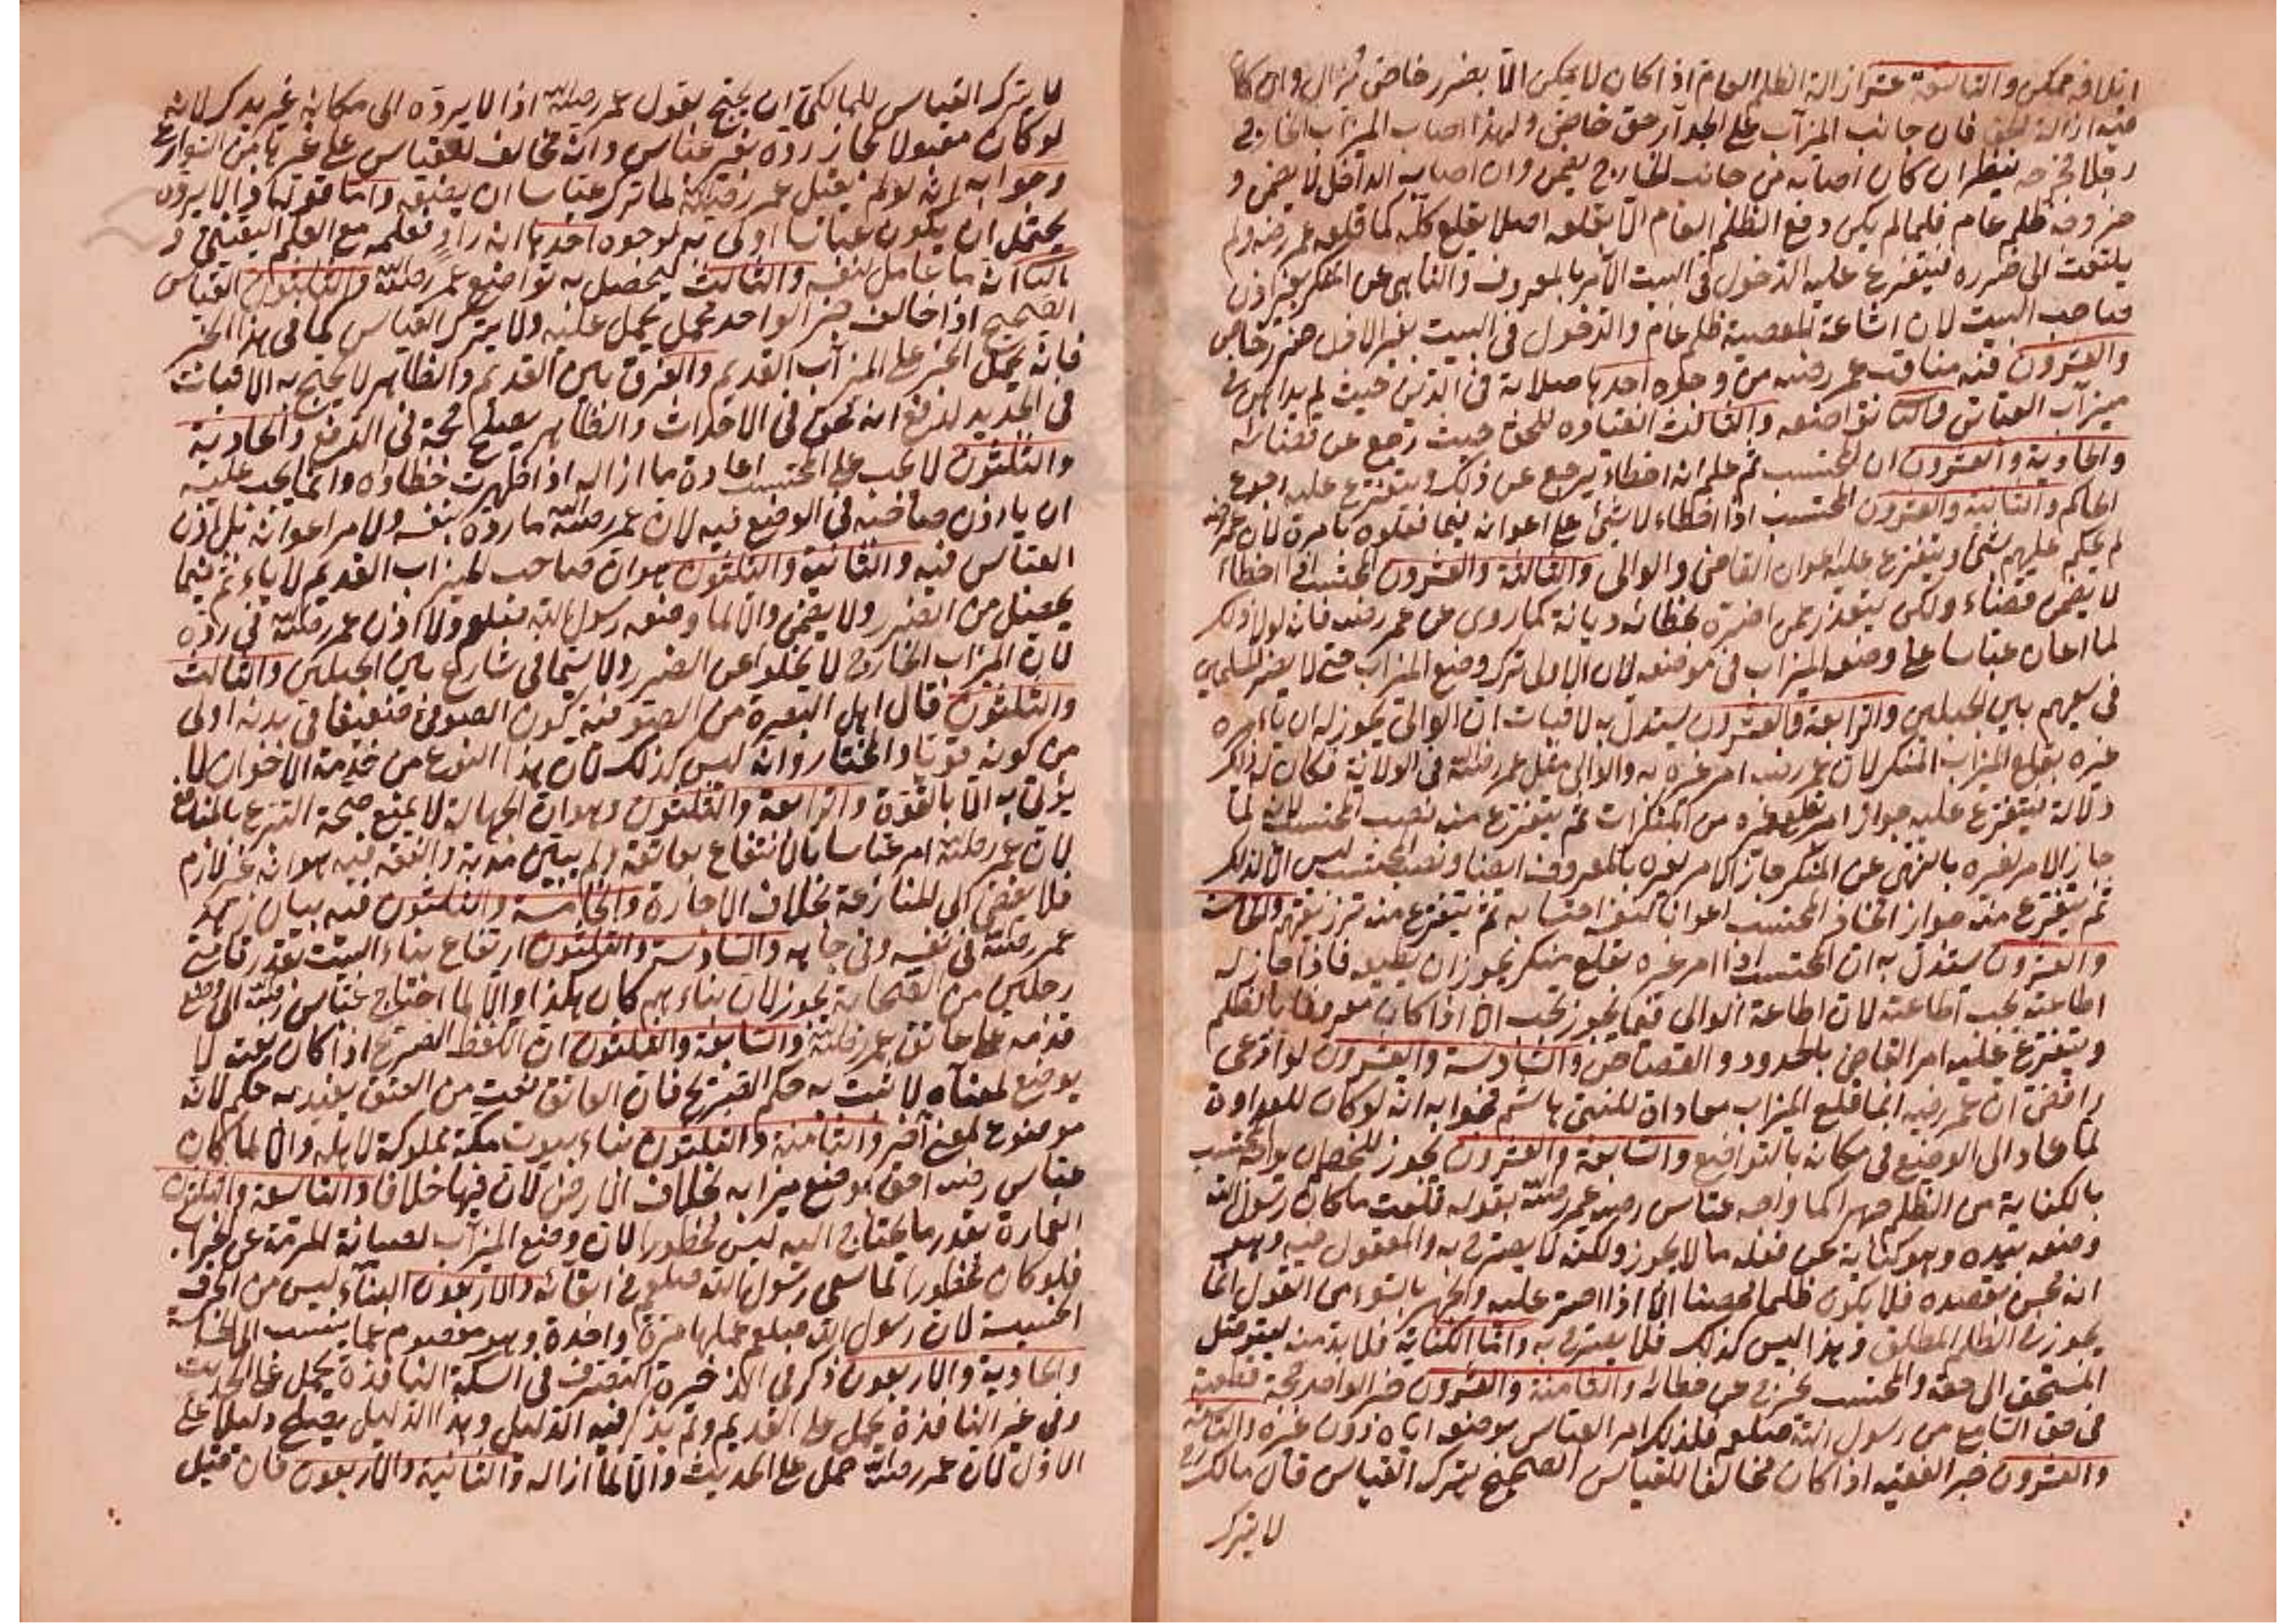 اتلافه ممكن والتاسعة عشر ازالة الظلم العام اذا كان لا يمكن الا بضرر خاص يزال وان كان
فيه ازالة حق فان جانب الميزاب على الجدار حق خاص ولهذا اصاب الميزاب الخارج
رجلا فجرحه ينظر ان كان اصابه من جانب الخارج يضمن وان اصابه الداخل لا يضمن و
ضرره ظلم عام فلما لم يكن دفع الظلم العام الا بقلعه اصلا يقلع كله كما قلعه عمر رضه ولم
يلتفت الى ضرره فيتفرع عليه الدخول في البيت الآمر بالمعروف والناهي عن المنكر بغير اذن
صاحب البيت لان اشاعة المعصية ظلم عام والدخول في البيت بغير الاذن ضرر خاص
والعشرون فيه مناقب عمر رضه من وجوه احدها صلابة في الدين حيث لم يداهن في
ميزاب العباس والثاني تواضعه والثالث انقياده للحق حيث رجع عن قضائه
والحادية والعشرون ان المحتسب ثم علم انه اخطاء يرجع عن ذلك ويتفرع عليه رجوع
الحاكم والثانية والعشرون المحتسب اذا اخطاء لا شيء على اعوانه فيما فعلوه بامره لان عمر رضه
لم يحكم عليهم شيئ ويتفرع عليه اعوان القاضي والوالي والثالثة والعشرون المحتسب اذا اخطاء
لا يضمن قضاء ولكن يتعذر عمن اضره بخطائه ديانة كما روى عن عمر رضه فانه لولا ذلك
لما اعان عباسا على وضع الميزاب في موضعه لان الاولى ترك وضع الميزاب حتى لا يضر المسلمين
في سعيهم بين الجبلين والرابعة والعشرون يستدل به لاثبات ان الوالي يجوز له ان يأمر
غيره بقلع الميزاب المنكر لان عمر رضه امر غيره به والوالي مثل عمر رضه في الولاية فكان له ذلك
دلالة فيتفرع عليه جواز امر بقلع غيره من المنكرات ثم يتفرع منه نصب المحتسب لانه لما
جاز الامر لغيره بالنهي عن المنكر جاز الامر لغيره بالمعروف ايضا ونصب المحتسب ليس الا لذلك
ثم يتفرع منه جواز اتخاذ المحتسب اعوانا لتنفيذ احتسابه ثم يتفرع منه ترزيقهم والخامسة
والعشرون يستدل به ان المحتسب اذا امر غيره بقلع منكر يجوز ان يطيعه فاذا جاز له
اطاعته يجب اطاعته لان اطاعة الوالي فيما يجوز تجب الا اذا كان معروفا بالظلم
ويتفرع عليه امر القاضي بالحدود والقصاص والسادسة والعشرون لو ادعى
رافضي ان عمر رضه انما قلع الميزاب معاداة للنبي هاشم فجوابه انه لو كان للعداوة
لما عاد الى الوضع في مكانه بالتواضع والسابعة والعشرون يجوز للخصم ان يواجه المحتسب
بالكناية من الظلم جهرا كما واجه عباس رضه عمر رضه بقوله قلعت ما كان رسول الله
وضعه بيده وهو كناية عن فعله ما لا يجوز ولكنه لا يصرح به والمعقول فيه وهو
انه محسن بقصده فلا يكون ظلما محضا الا اذا اصر عليه والجهر بالسوء من القول انما
يجوز في الظلم المطلق وهذا ليس كذلك فلا يصرح به واما الكناية فلا بد منه ليتوصل
المستحق الى حقه والمحتسب يحرز عن خطائه والثامنة والعشرون خبر الواحد حجة قطعية
في حق السامع من رسول الله صلعم فلذلك امر العباس بوضعه اياه دون غيره والتاسعة
والعشرون خبر الفقيه اذا كان مخالفا للقياس الصحيح يترك القياس قال مالك رح
لا يترك
لا يترك القياس للمالكي ان يحتج بقول عمر رضي الله اذا لا يرده الى مكانه غير يدك لانه
لو كان مقبولا لجاز رده بغير عباس وانه مخالف للقياس على غيرها من الشوارع
وجوابه انه لو لم يقبل عمر رضي الله لما ترك عباسا ان يضعه واما قوله اذا لا يرده
يحتمل ان يكون عباسا اولى به لوجوه احدها انه راو فعلمه مع العلم اليقيني و
الثاني انه ما عامل لنفسه والثالث ليحصل به تواضع عمر رضي الله والثلثون القياس
الصحيح اذا خالف خبر الواحد يحمل عليه ولا يترك القياس كما في هذا الخبر
فانه يحمل الخبر على الميزاب القديم والفرق بين القديم والظاهر لا يحتج به الاثبات
في الجديد لدفع انه نحن في الاحداث والظاهر يصلح حجة في الدفع والحادية
والثلثون لا يجب على المحتسب اعادة ما ازاله اذا ظهرت خطاؤه وانما يجب عليه
ان ياذن صاحبه في الوضع فيه لان عمر رضي الله ما رده بنفسه ولا امر اعوانه بل اذن
العباس فيه والثانية والثلثون هو ان صاحب الميزاب القديم لا ياثم فيما
يحصل من الضرر ولا يضمن والا لما وضعه رسول الله صلعم ولا اذن عمر رضي الله في رده
لان الميزاب الخارج لا يخلوا عن الضرر ولا سيما في شارع بين الجبلين والثالث
والثلثون قال اهل البصيرة من الصوفية كون الصوفي ضعيفا في بدنه اولى
من كونه قويا والمختار وانه ليس كذلك لان هذا النوع من خدمة الاخوان لا
يؤتى به الا بالقوة والرابعة والثلثون وهو ان الجهالة لا يمنع صحة التبرع بالمنافع
لان عمر رضي الله امر عباسا بالانتفاع بعاتقه ولم يبين مدته والفقه فيه هو انه غير لازم
فلا يفضي الى المنازعة بخلاف الاجارة والخامسة والثلثون فيه بيان زهد
عمر رضي الله في نفسه وفي جاهه والسادسة والثلثون ارتفاع بناء البيت بقدر قامتي
رجلين من الصحابة يجوز لان بناءهم كان هكذا والا لما احتاج عباس رضي الله الى وضع
قدمه على عاتق عمر رضي الله والسابعة والثلثون ان اللفظ الصريح اذا كان نعته لا
يوضع لمعناه لا يثبت به حكم الصريح فان العاتق نعت من العتق يفيد به حكم لانه
موضوع لمعنى آخر والثامنة والثلثون بناء بيوت مكة مملوكة لاهله والا لما كان
عباس رضه احق بوضع ميزابه بخلاف الارض لان فيها خلافا والتاسعة والثلثون
العمارة بقدر ما يحتاج اليه ليس محظورا لان وضع الميزاب لصيانة المرمة عن خرابها
فلو كان محظورا لما سعى رسول الله صلعم في ابقائه والاربعون البناء ليس من الحرف
الخسيسة لان رسول الله صلعم عملها مرة واحدة وهو معصوم عما ينسب الى الخساسة
والحادية والاربعون ذكر في الذخيرة التصرف في السكة النافذة يحمل على الحديث
وفي غير النافذة يحمل على القديم ولم يذكر فيه الدليل وهذا الدليل يصلح دليلا على
الاول لان عمر رضي الله حمل على الحديث والا لما ازاله والثانية والاربعون فان قيل